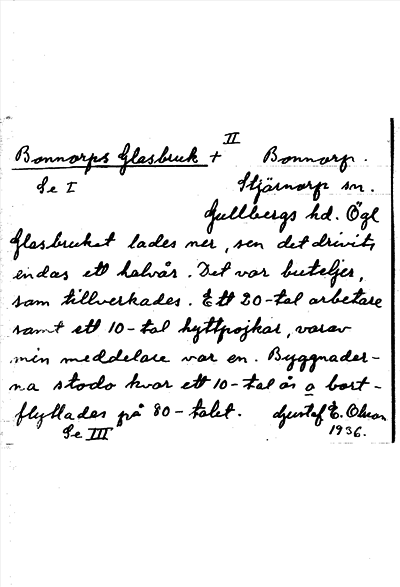 II
Bonnorps Glasbruk + Bonnorp.
Se I Stjärnorp sn.
Gullbergs hd. Ögl
Glasbruket lades ner, sen det drivits
endas ett halvår. Det var buteljer,
som tillverkades. Ett 20-tal arbetare
samt ett 10-tal hyttpojkar, varav
min meddelare var en. Byggnader-
na stodo kvar ett 10-tal år o bort-
flyttades på 80-talet. Gustaf E. Olsson
Se III 1936.